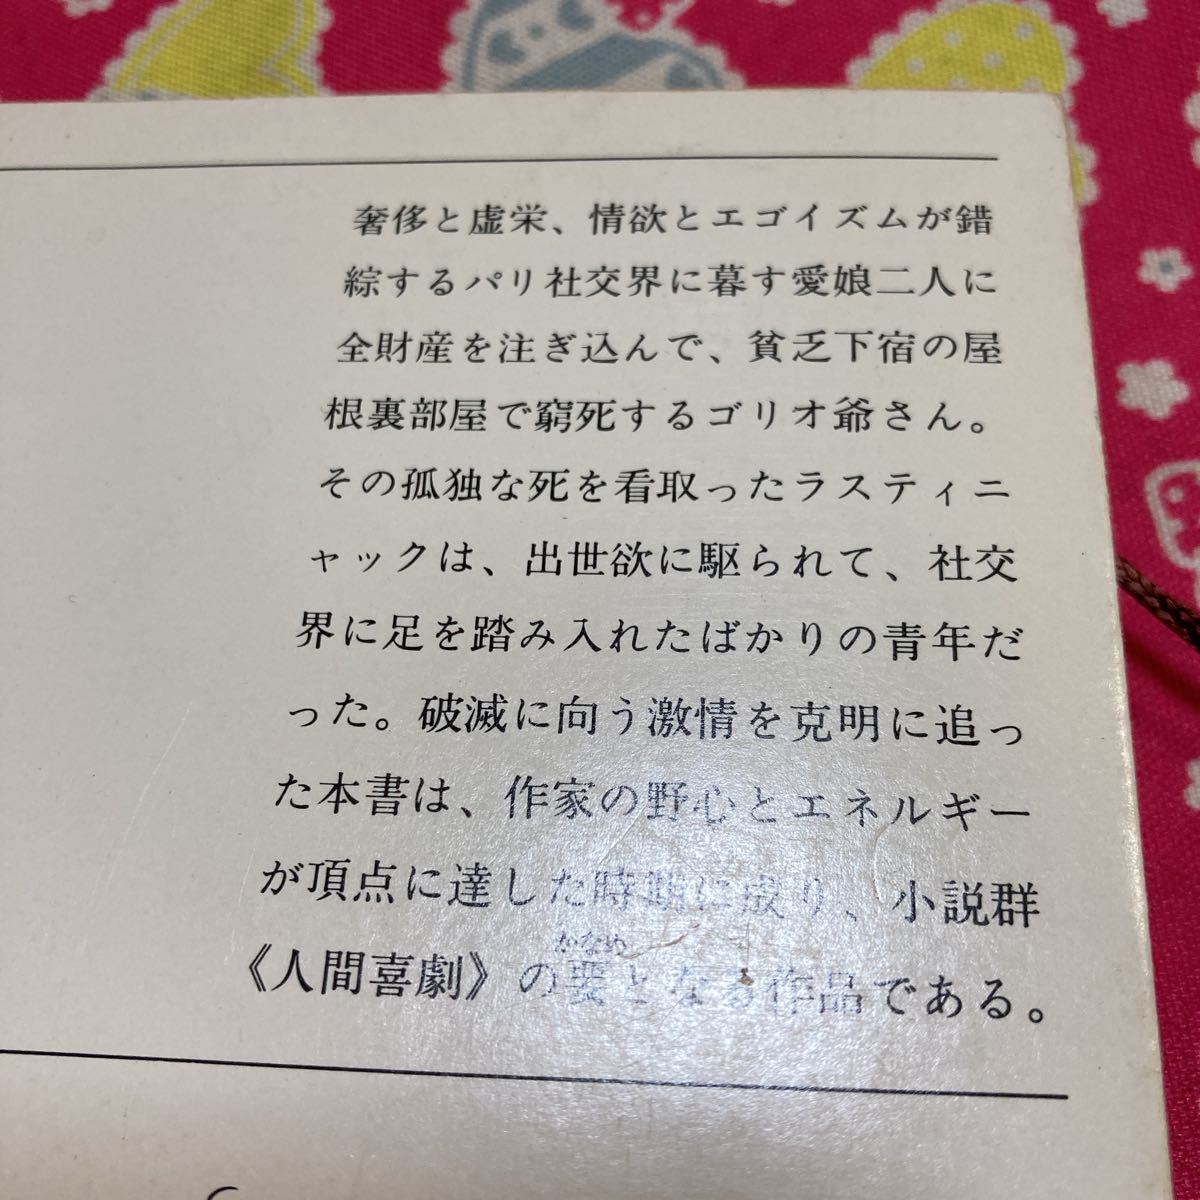 奢侈と虚栄、情欲とエゴイズムが錯
綜するパリ社交界に暮す愛娘二人に
全財産を注ぎ込んで、貧乏下宿の屋
根裏部屋で窮死するゴリオ爺さん。
その孤独な死を看取ったラスティニ
ャックは、出世欲に駆られて、社交
界に足を踏み入れたばかりの青年だ
った。破滅に向う激情を克明に追っ
た本書は、作家の野心とエネルギー
が頂点に達した時期に成り、小説群
かなめ
《人間喜劇》の要となる作品である。